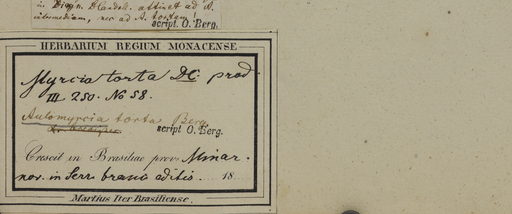 in Diagn. DCandoll. attinet ad A.
intermediam, nec ad A. tortam!
script. O. Berg.
HERBARIUM REGIUM MONACENSE
Myrcia torta DC. prod.
III. 250. No 58.
Aulomyrcia torta Berg
script O. Berg.
Crescit in Brasiliae prov. Minar.
nov. in Serr. brano editis. 18
Martius Iter Brasiliense.